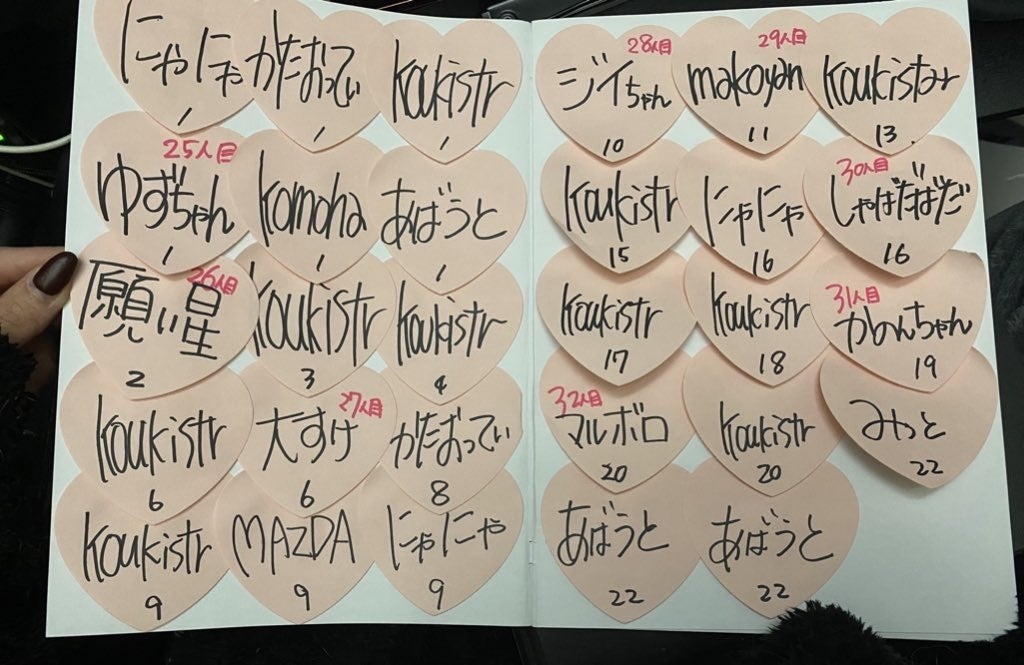 にゃにゃ
1
かたおってぃ
1
koukistr
1
25人目
ゆずちゃん
1
komoha
1
あばうと
1
26人目
願い星
2
koukistr
3
koukistr
4
koukistr
6
27人目
大すけ
6
かたおってぃ
8
koukistr
9
MAZDA
9
にゃにゃ
9
28人目
ジイちゃん
10
29人目
makoyan
11
koukistar
13.
koukistr
15
にゃにゃ
16
30人目
しゃばだばだ
16
koukistr
17
koukistr
18
31人目
かのんちゃん
19
32人目
マルボロ
20
koukistr
20
みっと
22
あばうと
22
あばうと
22